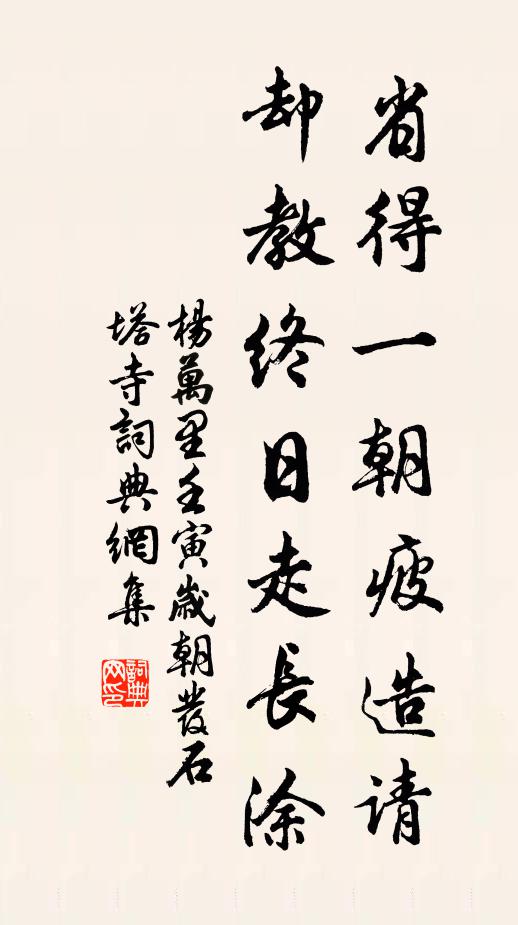 省得一朝疲造请
却教终日走長涂
楊萬里壬寅歲朝發石
塔寺詞典網集
詞典网印